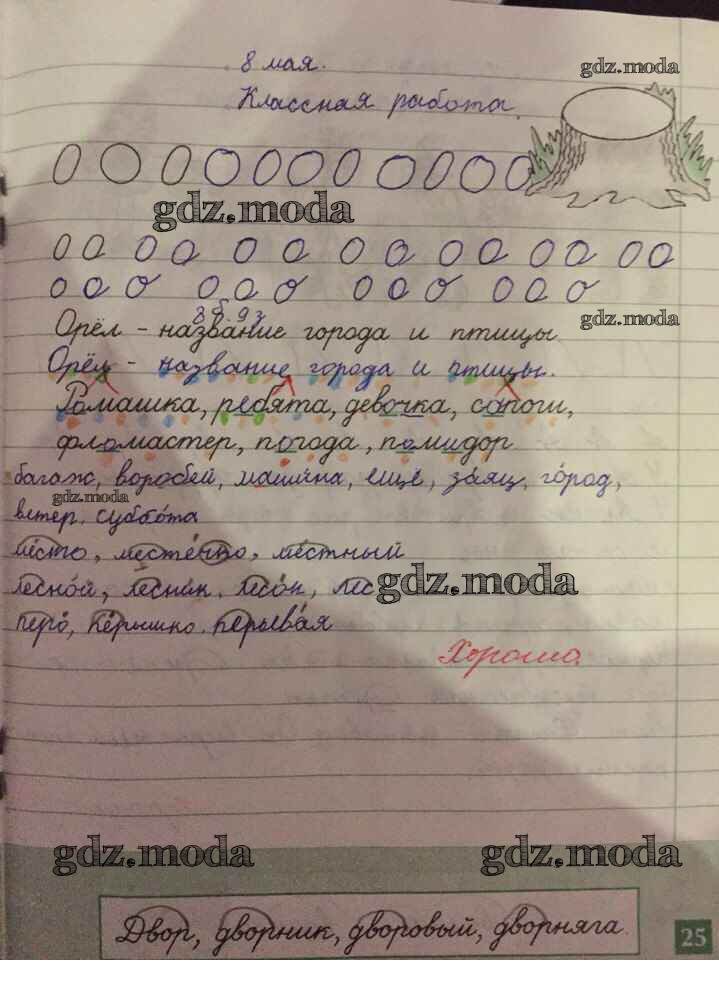 8 мая.
gdz.moda
Классная работа.
О О О О О О О О О О О
gdz.moda
О О О О О О О О О О О О О О
О О О О О О О О О О О О
gdz.moda
Орёл - название города и птицы
Орёл - название города и птицы.
Ромашка, ребята, девочка, сапоги,
фломастер, погода, помидор
багаж, воробей, машина, ещё, заяц, город,
gdz.moda
ветер, суббота
место, местечко, местный
лесной, лесник, лесок, лес
gdz.moda
перо, пёрышко, перьевая
Хорошо.
gdz.moda gdz.moda
Двор, дворник, дворовый, дворняга.
25